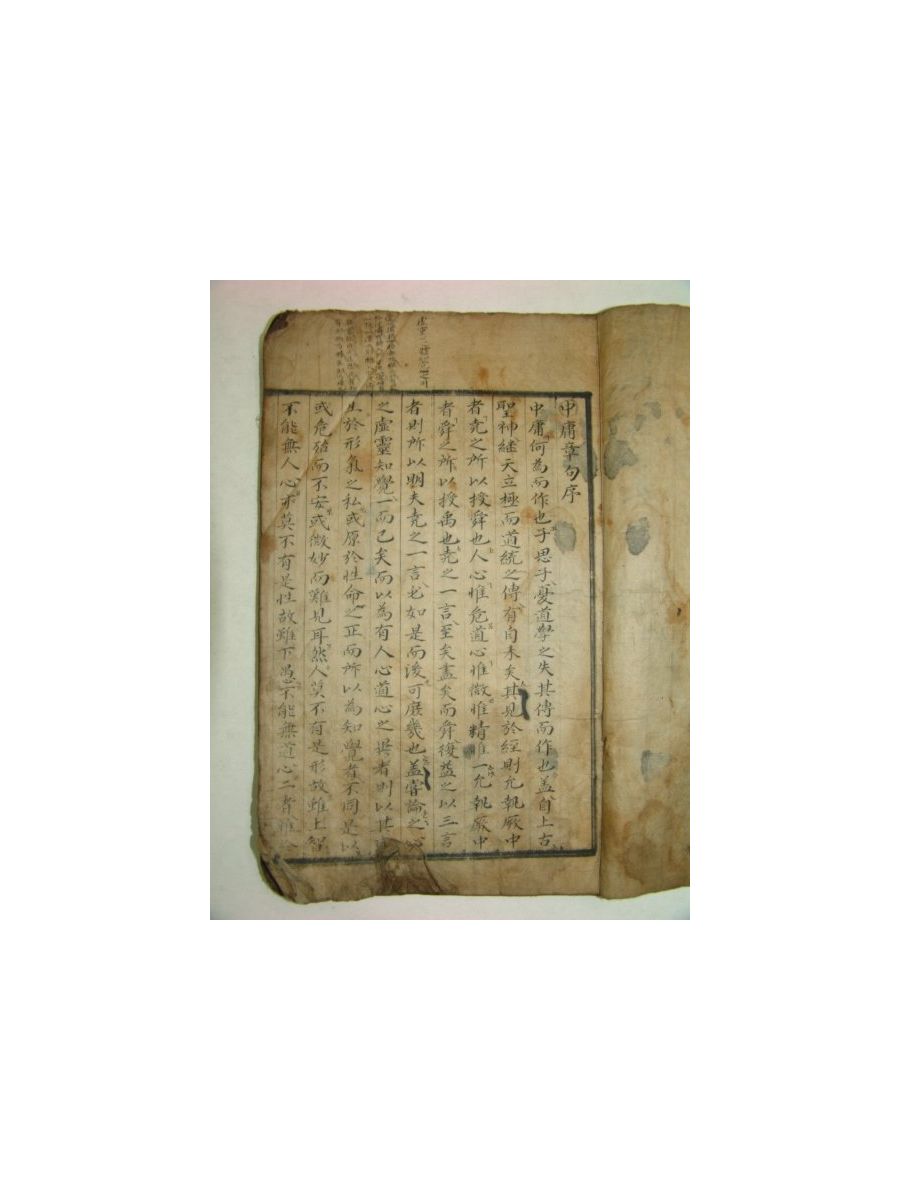 中庸章句序
中庸何為而作也子思子憂道學之失其傳而作也盖自上古
聖神継天立極而道統之傳有自来矣其見於經則允執厥中
者堯之所以授舜也人心惟危道心惟微惟精惟一允執厥中
者舜之所以授禹也堯之一言至矣盡矣而舜復益之以三言
者則所以明夫堯之一言必如是而後可庶幾也盖嘗論之心
之虛靈知覺一而已矣而以為有人心道心之異者則以其
生於形氣之私或原於性命之正而所以為知覺者不同是以
或危殆而不安或微妙而難見耳然人莫不有是形故雖上智
不能無人心亦莫不有是性故雖下愚不能無道心二者雜